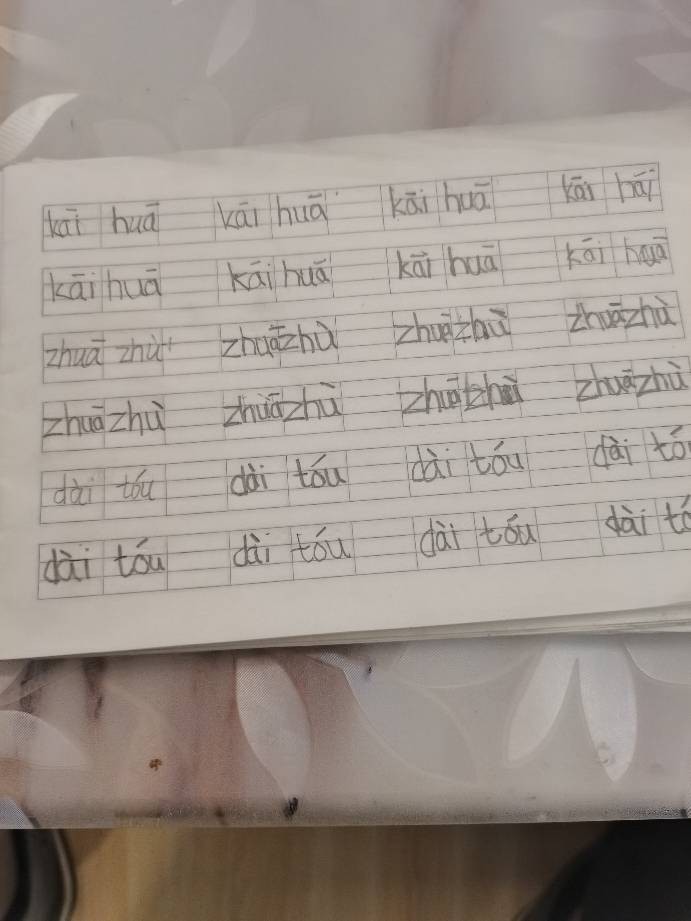 kāi huā kāi huā kāi huā kāi hāi
kāi huā kāi huā kāi huā kāi huā
zhuā zhù zhuā zhù zhuā zhù zhuā zhù
zhuā zhù zhuā zhù zhuā zhù zhuā zhù
dài tóu dài tóu dài tóu dài tó
dài tóu dài tóu dài tóu dài tó